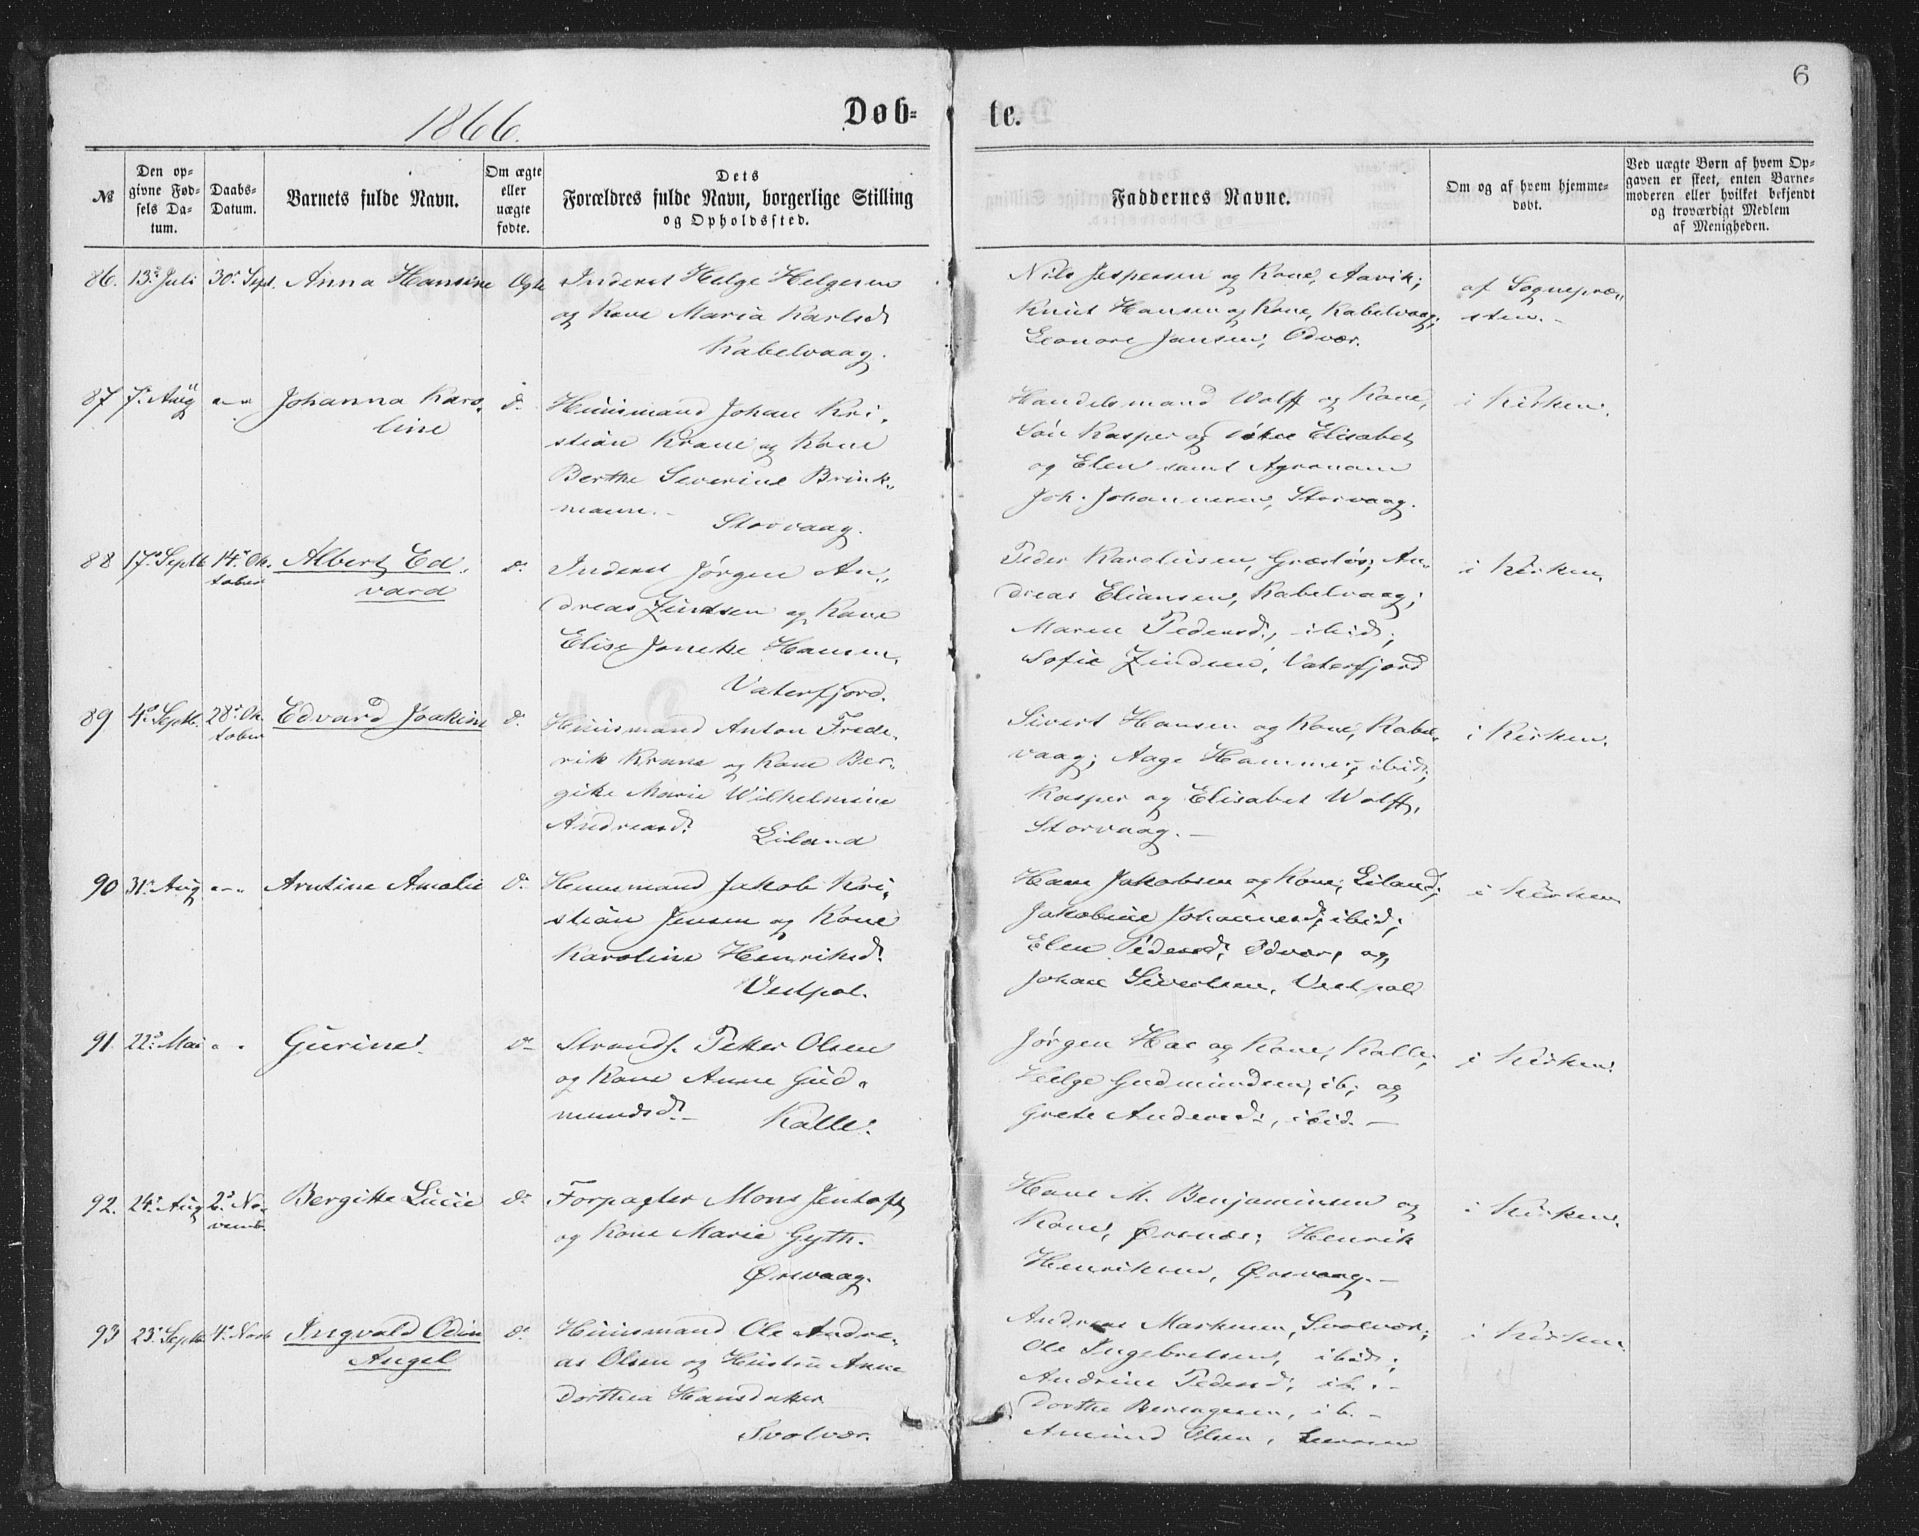 6
1866.
Døb-
te.
№
Den op-
givne Fød-
sels Da-
tum.
Daabs-
Datum.
Barnets fulde Navn.
Om ægte
eller
uægte
fødte.
Dets
Forældres fulde Navn, borgerlige Stilling
og Opholdssted.
Faddernes Navne.
Om og af hvem hjemme-
døbt.
Ved uægte Børn af hvem Op-
gaven er skeet, enten Barne-
moderen eller hvilket bekjendt
og troværdigt Medlem
af Menigheden.
86. 13. Juli 30. Sept. Anna Hansine Ægte Inderst Helge Helgesen
og Kone Maria Karlsd.
Kabelvaag.
Nils Jespersen og Kone, Aavik;
Knut Hansen og Kone, Kabelvaag;
Leonore Jansen, Odvær.
af Sognepræ-
sten.
87 7. Aug Johanna Karo-
line
d. Huusmand Johan Kri-
stian Krane og Kone
Berthe Severine Brink-
mann.
Storvaag.
Handelsmand Wolff og Kone,
Søn Kasper og Elisabet
og Elen samt Agronom
Joh. Johannesen, Storvaag.
i Kirken.
88 17. Septb 14. Ok-
tober
Albert Ed-
vard
d. Inderst Jørgen An-
dreas Zindsen og Kone
Elise Hansen,
Vaterfjord.
Peder Karolusen, An-
dreas Eliansen, Kabelvaag;
Maren Pedersd., ibid;
Sofie Vaterfjord
i Kirken.
89 4. Septb. 28. Ok-
tober
Edvard Joakim d. Huusmand Anton Frede-
rik Krane og Kone Ber-
gitte Marie Wilhelmine
Andreasd.
Eiland
Sivert Hansen og Kone, Kabel-
vaag; Aage Hammer, ibid;
Kasper og Elisabet Wolff,
Storvaag.
i Kirken.
90 31. Aug Arntine Amalie d. Huusmand Jakob Kri-
stian Jensen og Kone
Karoline Henriksd.
Vestpol.
Hans Jakobsen og Kone, Eiland;
Jakobine Johannesd, ibid;
Elen Pedersd, Odvær, og
Johan Sivertsen, Vestpol
i Kirken
91. 22. Mai Gurine d. Strands. Peter Olsen
og Kone Anne Gud-
mundsd.
Kalle.
Jørgen og Kone, Kalle,
Helge Gudmundsen, ib, og
Grete Andersd., ibid.
i Kirken.
92. 24. Aug 2. No-
vemb
Bergitte Lucie d. Forpagter Mons Jentoft
og Kone Marie Gyth.
Ørsvaag.
Hans M. Benjaminsen og
Kone, Ørsnes; Henrik
Henriksen, Ørsvaag.
i Kirken.
93 23. Septb 4. Novb Ingvald Odin
Angel
d. Huusmand Ole Andre-
as Olsen og Hustru Anne
Dorthea Hansdatter
Svolvær.
Andreas Markusen, Svolvær;
Ole Ingebretsen, ibid;
Andrine Pedersd, ib.
Dorthe ib.
Amund Olsen,
i Kirken.